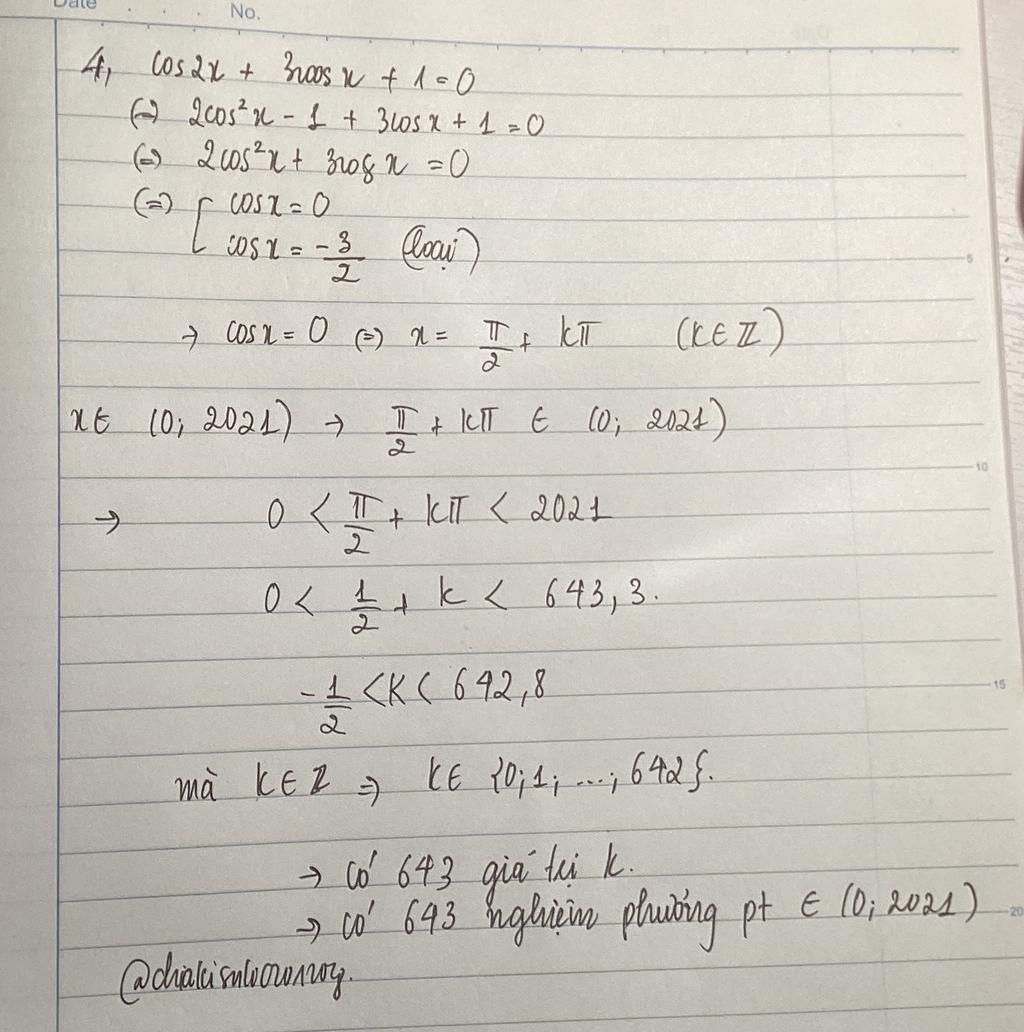 Date No.
4, cos2x + 3cos x + 1 = 0
(=) 2cos²x - 1 + 3cosx + 1 = 0
(=) 2cos²x + 3cos x = 0
(=) [ cosx = 0
cosx = -3/2 (loại)
→ cosx = 0 (=) x = π/2 + kπ (k∈Z)
x∈ (0; 2021) → π/2 + kπ ∈ (0; 2021)
→ 0 < π/2 + kπ < 2021
0 < 1/2 + k < 643,3.
-1/2 < K < 642,8
mà k∈Z ⇒ k∈ {0;1;...;642}.
→ có 643 giá trị k.
→ có 643 nghiệm phương pt ∈ (0; 2021)
5
10
15
20